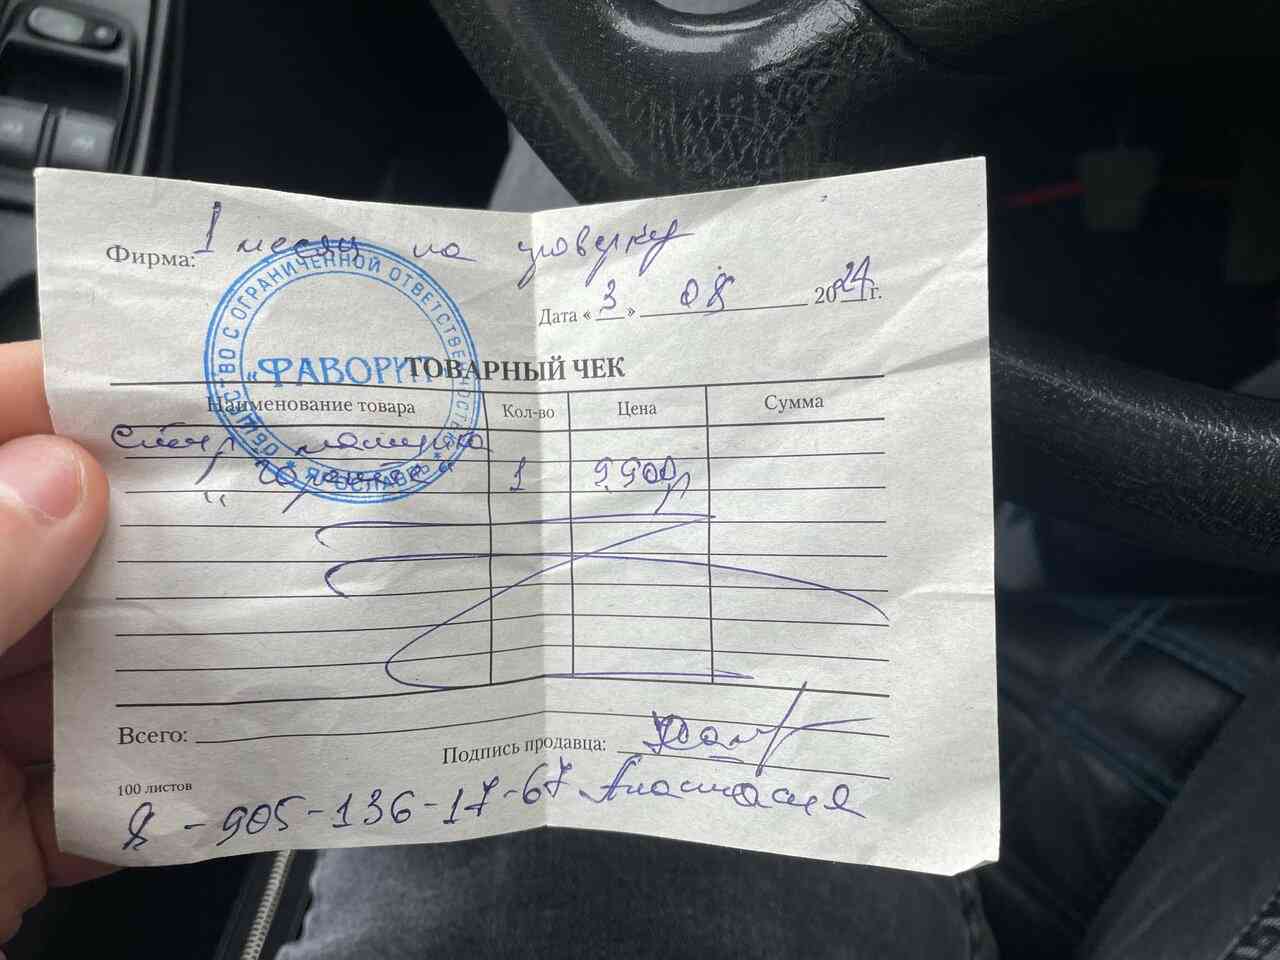 Фирма: 1 месяц на проверку
Дата « 3 » 08 2024 г.
ОБЩЕСТВО С ОГРАНИЧЕННОЙ ОТВЕТСТВЕННОСТЬЮ
«ФАВОРИТ»
* ЯРОСЛАВЛЬ *
ТОВАРНЫЙ ЧЕК
Наименование товара Кол-во Цена Сумма
стир машинка
1 9900р
Всего:
Подпись продавца:
100 листов
8-905-136-17-67 Анастасия